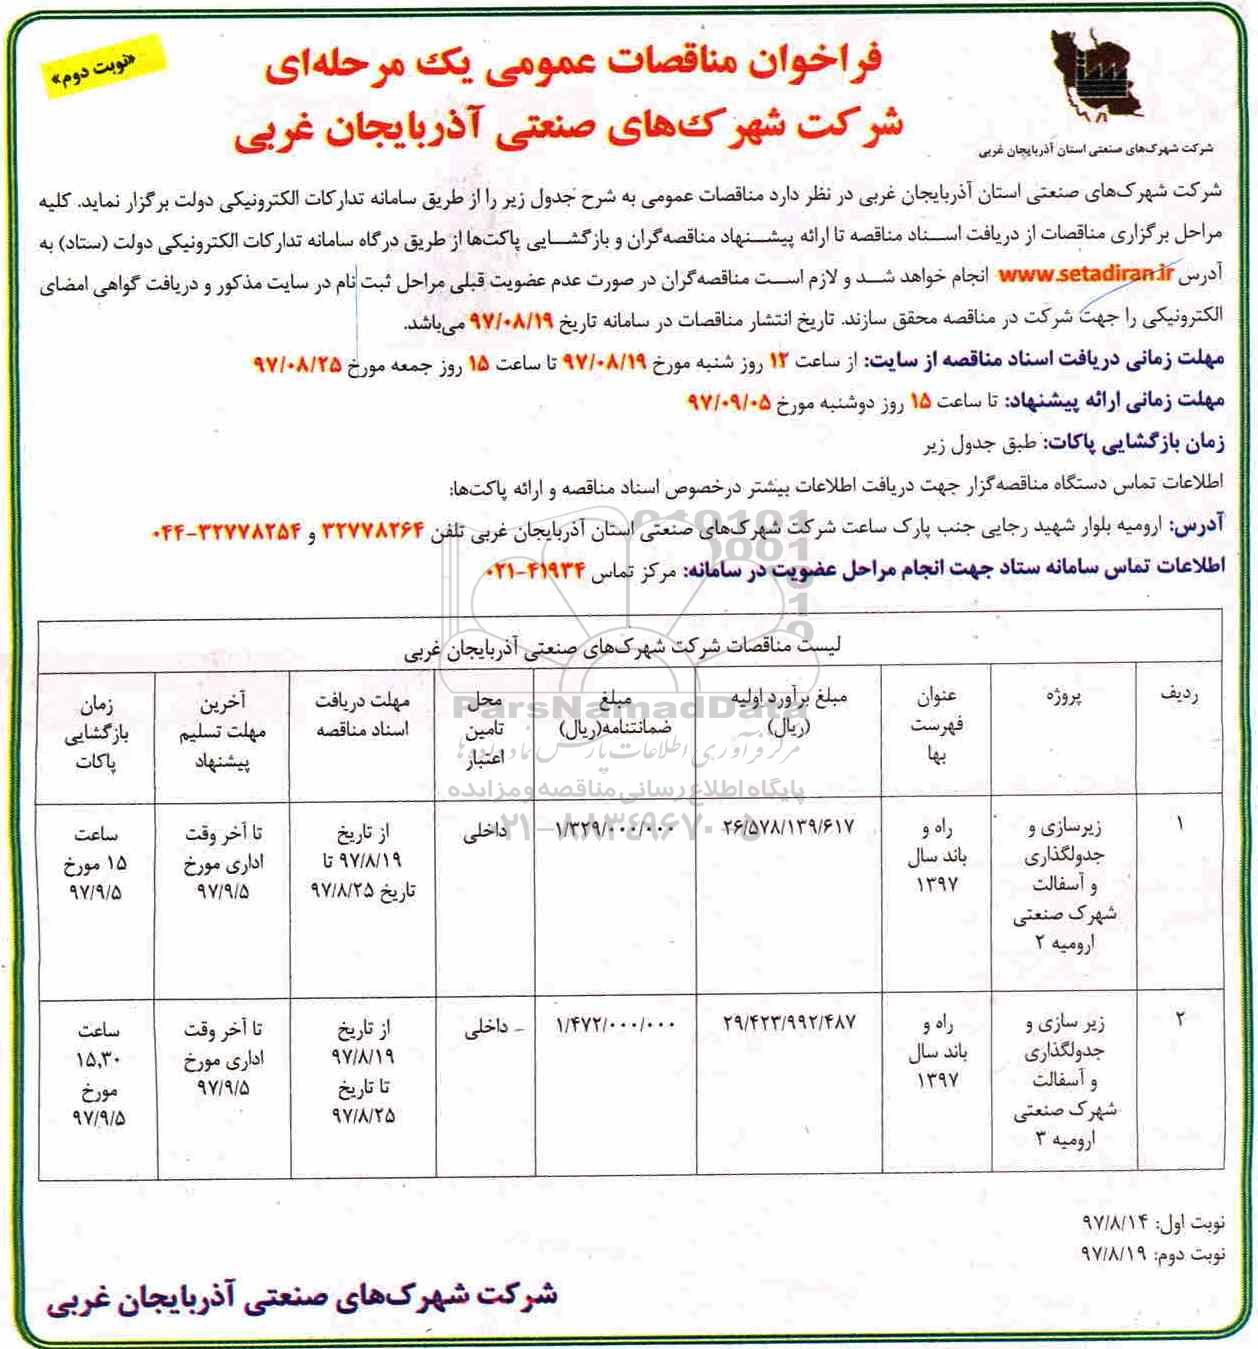 «نوبت دوم»
فراخوان مناقصات عمومی یک مرحله‌ای
شرکت شهرک‌های صنعتی آذربایجان غربی
شرکت شهرک‌های صنعتی استان آذربایجان غربی
شرکت شهرک‌های صنعتی استان آذربایجان غربی در نظر دارد مناقصات عمومی به شرح جدول زیر را از طریق سامانه تدارکات الکترونیکی دولت برگزار نماید. کلیه
مراحل برگزاری مناقصات از دریافت اسناد مناقصه تا ارائه پیشنهاد مناقصه‌گران و بازگشایی پاکت‌ها از طریق درگاه سامانه تدارکات الکترونیکی دولت (ستاد) به
آدرس www.setadiran.ir انجام خواهد شد و لازم است مناقصه‌گران در صورت عدم عضویت قبلی مراحل ثبت نام در سایت مذکور و دریافت گواهی امضای
الکترونیکی را جهت شرکت در مناقصه محقق سازند. تاریخ انتشار مناقصات در سامانه تاریخ ۹۷/۰۸/۱۹ می‌باشد.
مهلت زمانی دریافت اسناد مناقصه از سایت: از ساعت ۱۲ روز شنبه مورخ ۹۷/۰۸/۱۹ تا ساعت ۱۵ روز جمعه مورخ ۹۷/۰۸/۲۵
مهلت زمانی ارائه پیشنهاد: تا ساعت ۱۵ روز دوشنبه مورخ ۹۷/۰۹/۰۵
زمان بازگشایی پاکات: طبق جدول زیر
اطلاعات تماس دستگاه مناقصه‌گزار جهت دریافت اطلاعات بیشتر درخصوص اسناد مناقصه و ارائه پاکت‌ها:
آدرس: ارومیه بلوار شهید رجایی جنب پارک ساعت شرکت شهرک‌های صنعتی استان آذربایجان غربی تلفن ۳۲۷۷۸۲۶۴ و ۳۲۷۷۸۲۵۴-۰۴۴
اطلاعات تماس سامانه ستاد جهت انجام مراحل عضویت در سامانه: مرکز تماس ۴۱۹۳۴-۰۲۱
لیست مناقصات شرکت شهرک‌های صنعتی آذربایجان غربی
ردیف
پروژه
عنوان
فهرست
بها
مبلغ برآورد اولیه
(ریال)
مبلغ
ضمانتنامه(ریال)
محل
تامین
اعتبار
مهلت دریافت
اسناد مناقصه
آخرین
مهلت تسلیم
پیشنهاد
زمان
بازگشایی
پاکات
۱
زیرسازی و
جدولگذاری
و آسفالت
شهرک صنعتی
ارومیه ۲
راه و
باند سال
۱۳۹۷
۲۶/۵۷۸/۱۳۹/۶۱۷
۱/۳۲۹/۰۰۰/۰۰۰
داخلی
از تاریخ
۹۷/۸/۱۹ تا
تاریخ ۹۷/۸/۲۵
تا آخر وقت
اداری مورخ
۹۷/۹/۵
ساعت
۱۵ مورخ
۹۷/۹/۵
۲
زیر سازی و
جدولگذاری
و آسفالت
شهرک صنعتی
ارومیه ۳
راه و
باند سال
۱۳۹۷
۲۹/۴۲۳/۹۹۲/۴۸۷
۱/۴۷۲/۰۰۰/۰۰۰
داخلی
از تاریخ
۹۷/۸/۱۹
تا تاریخ
۹۷/۸/۲۵
تا آخر وقت
اداری مورخ
۹۷/۹/۵
ساعت
۱۵,۳۰
مورخ
۹۷/۹/۵
ParsNamadData
مرکز فرآوری اطلاعات پارس نماد داده ها
پایگاه اطلاع رسانی مناقصه و مزایده
نوبت اول: ۹۷/۸/۱۴
نوبت دوم: ۹۷/۸/۱۹
شرکت شهرک‌های صنعتی آذربایجان غربی